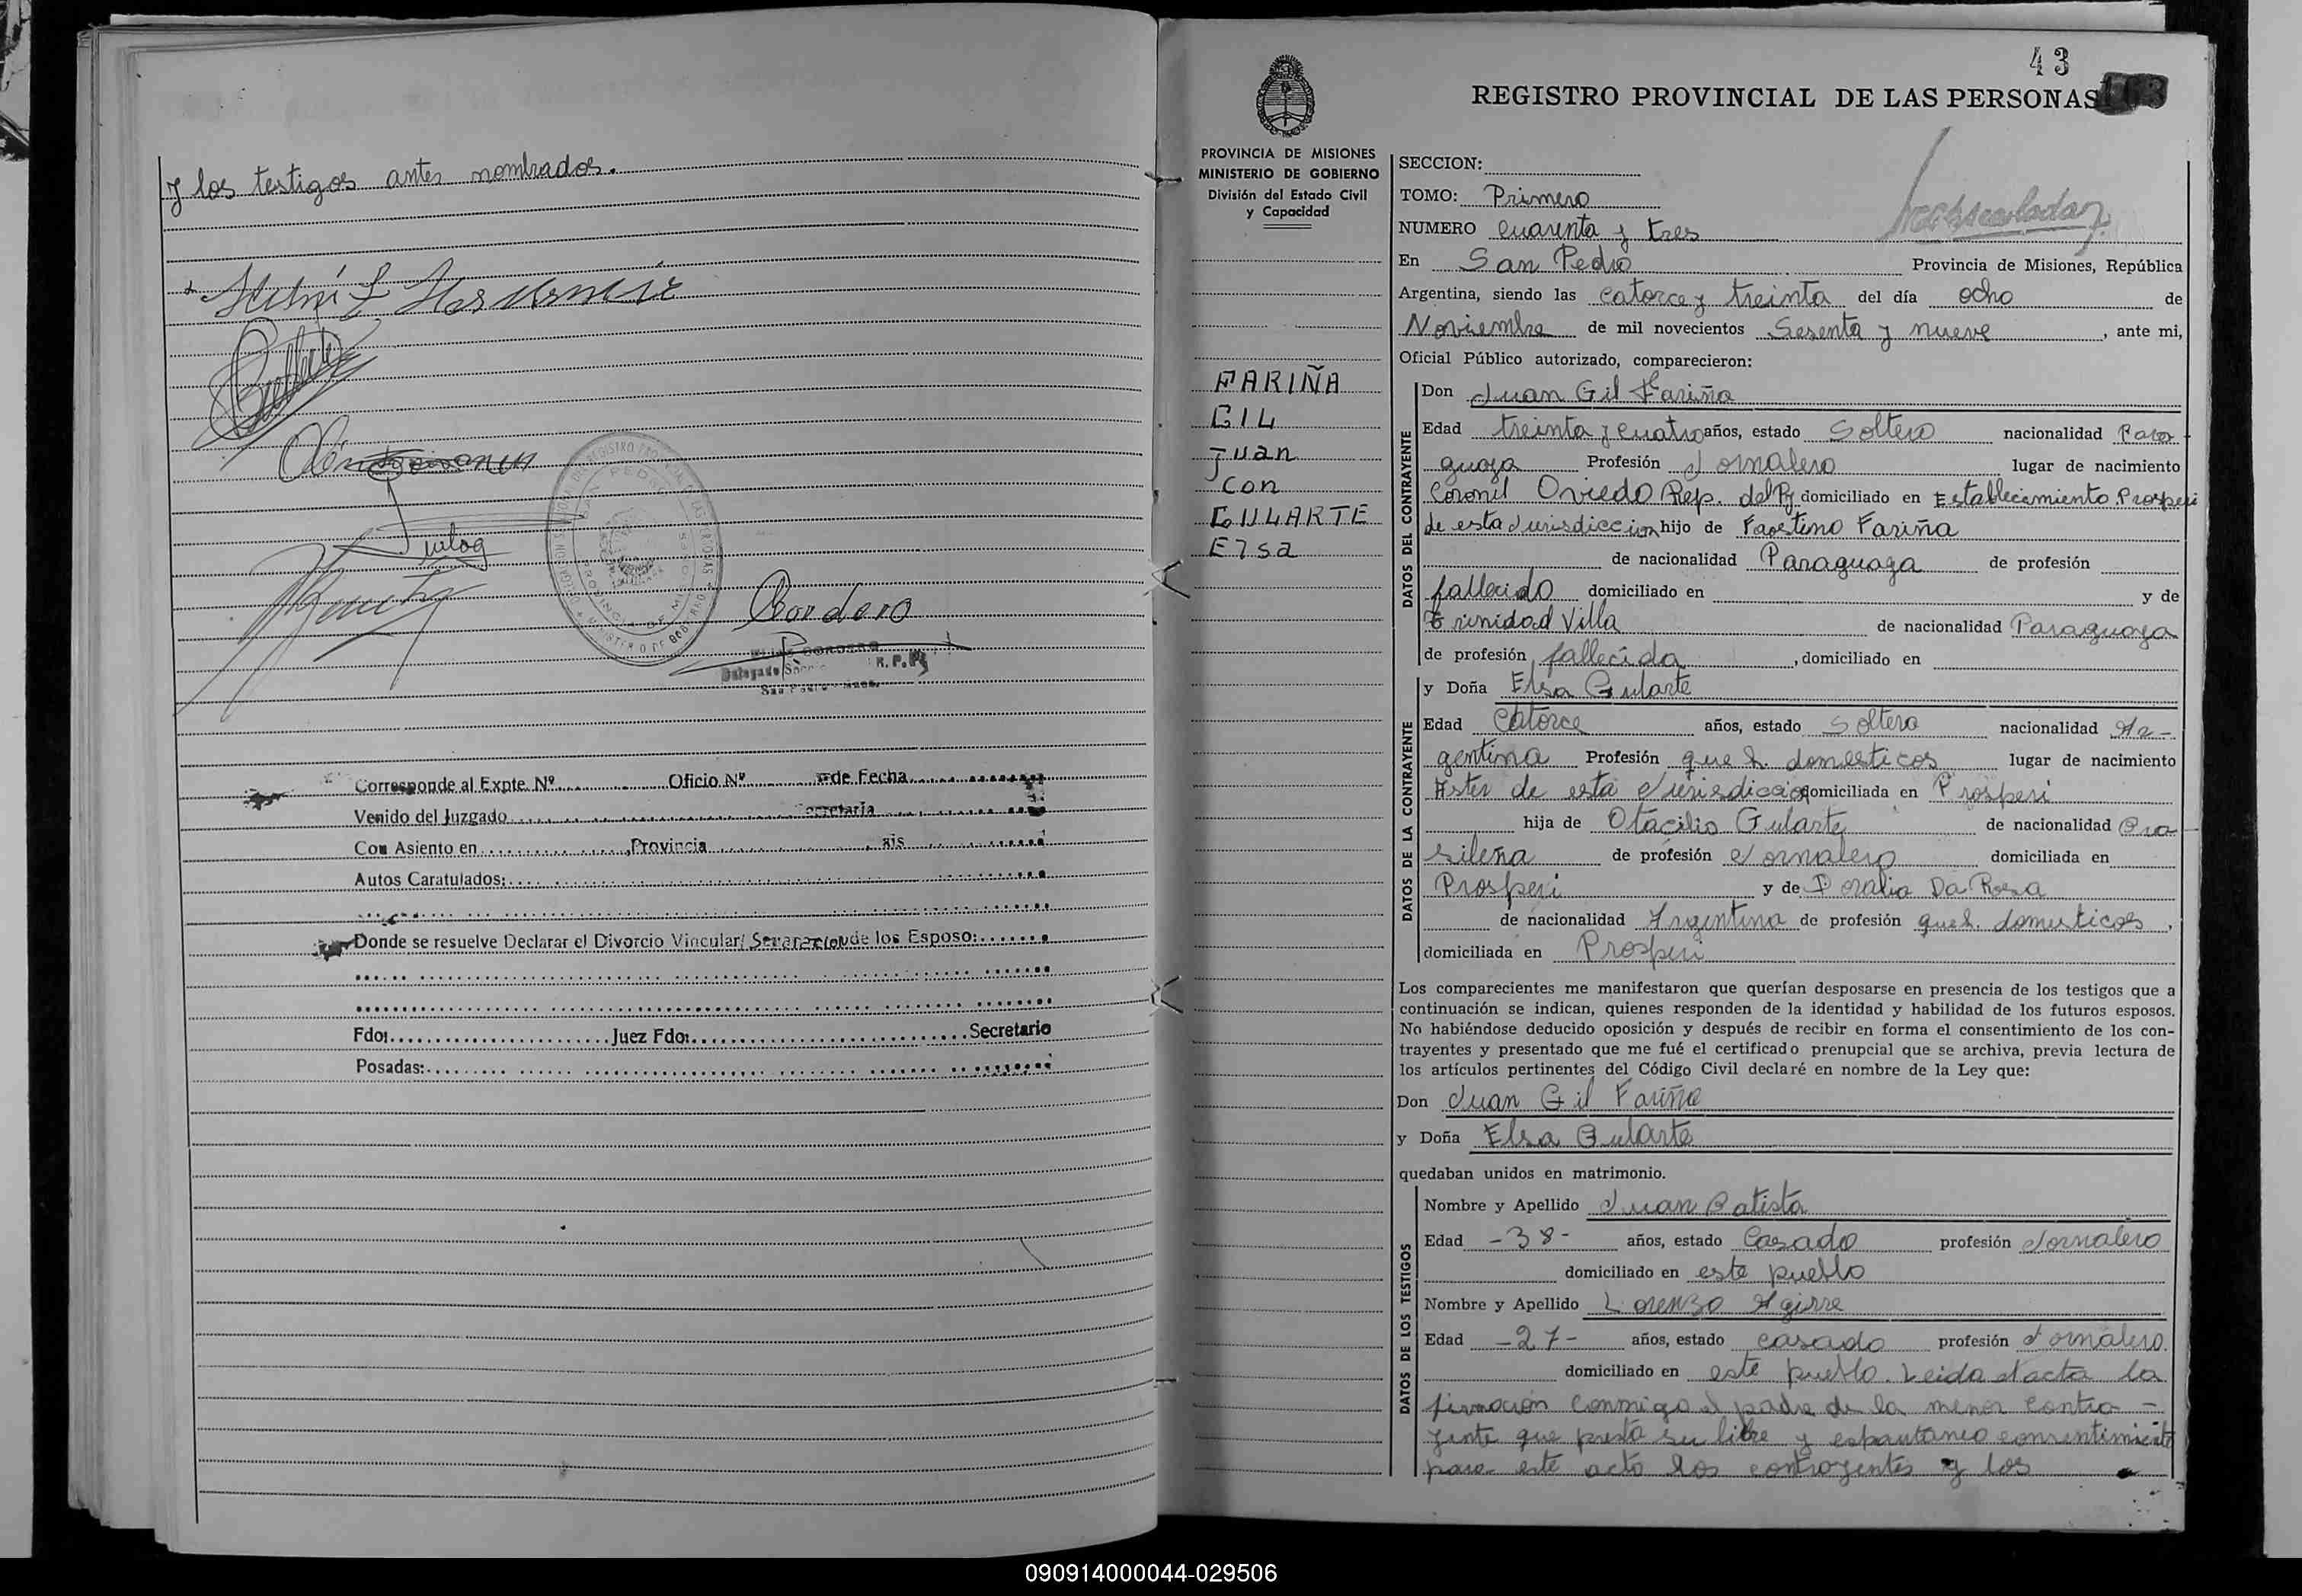 y los testigos antes nombrados.
Cordero
Corresponde al Expte. Nº Oficio Nº de Fecha
Venido del Juzgado Secretaria
Con Asiento en Provincia
Autos Caratulados:
Donde se resuelve Declarar el Divorcio Vincular/ Separacion de los Esposo:
Fdo: Juez Fdo: Secretario
Posadas:
43
REGISTRO PROVINCIAL DE LAS PERSONAS
PROVINCIA DE MISIONES
MINISTERIO DE GOBIERNO
División del Estado Civil
y Capacidad
FARIÑA
GIL
Juan
Con
GULARTE
Elsa
SECCION:
TOMO: Primero
NUMERO Cuarenta y tres
En San Pedro Provincia de Misiones, República
Argentina, siendo las Catorce y treinta del día ocho de
Noviembre de mil novecientos Sesenta y nueve, ante mi,
Oficial Público autorizado, comparecieron:
DATOS DEL CONTRAYENTE
Don Juan Gil Fariña
Edad treinta y cuatro años, estado Soltero nacionalidad Para-
guaya Profesión Jornalero lugar de nacimiento
Coronel Oviedo Rep. del Py domiciliado en Establecimiento Prosperi
de esta Jurisdiccion hijo de Faostino Fariña
de nacionalidad Paraguaya de profesión
fallecido domiciliado en y de
Trinidad Villa de nacionalidad Paraguaya
de profesión fallecida, domiciliado en
DATOS DE LA CONTRAYENTE
y Doña Elsa Gularte
Edad Catorce años, estado Soltera nacionalidad Ar-
gentina Profesión que h. domesticos lugar de nacimiento
de esta Jurisdiccion domiciliada en Prosperi
hija de Otacilio Gularte de nacionalidad Bra
sileña de profesión Jornalero domiciliada en
Prosperi y de Doralia Da Rosa
de nacionalidad Argentina de profesión queh. domesticos,
domiciliada en Prosperi
Los comparecientes me manifestaron que querían desposarse en presencia de los testigos que a
continuación se indican, quienes responden de la identidad y habilidad de los futuros esposos.
No habiéndose deducido oposición y después de recibir en forma el consentimiento de los con-
trayentes y presentado que me fué el certificado prenupcial que se archiva, previa lectura de
los artículos pertinentes del Código Civil declaré en nombre de la Ley que:
Don Juan Gil Fariña
y Doña Elsa Gularte
quedaban unidos en matrimonio.
DATOS DE LOS TESTIGOS
Nombre y Apellido Juan Batista
Edad -38- años, estado Casado profesión Jornalero
domiciliado en este pueblo
Nombre y Apellido Lorenzo Agirre
Edad -27- años, estado casado profesión Jornalero.
domiciliado en este pueblo. Leida el acta la
firmaron conmigo el padre de la menor contra-
yente que presta su libre y espontaneo consentimiento
para este acto los contrayentes y los
090914000044-029506